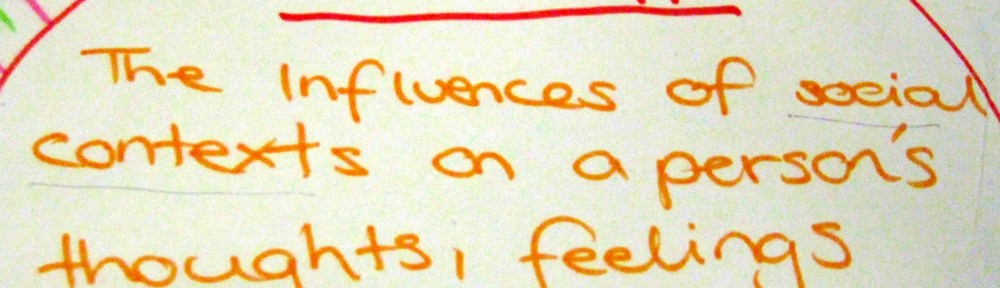 The Influences of social
contexts on a person's
thoughts, feelings